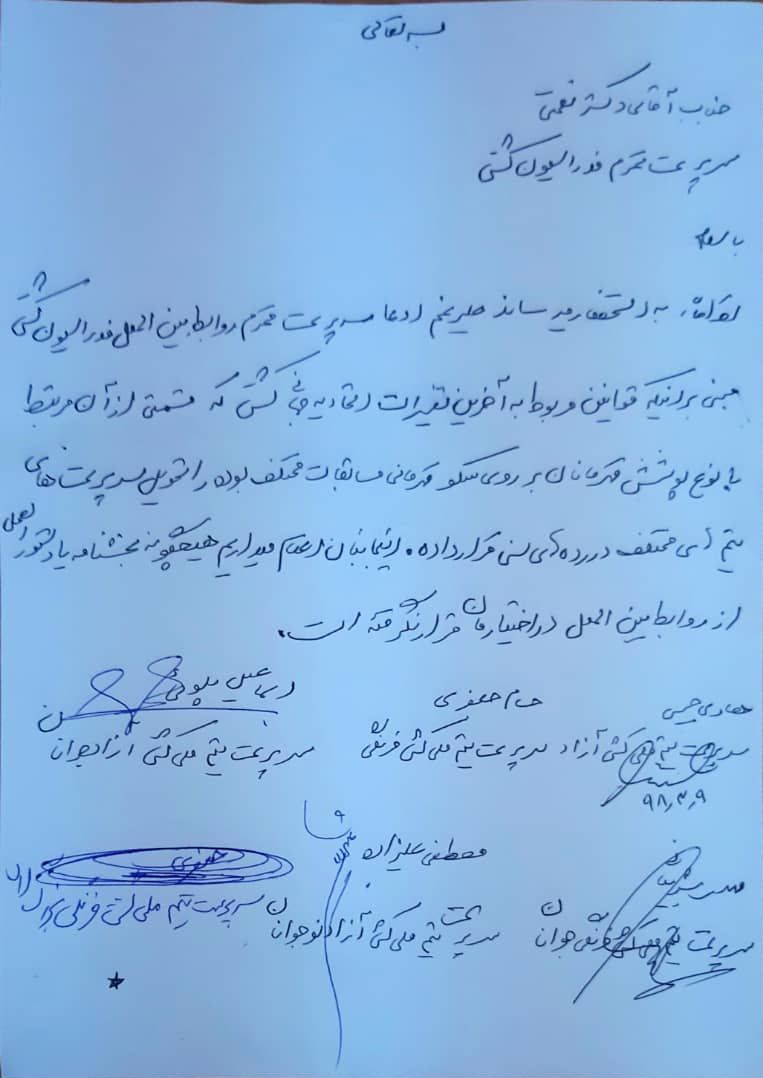 بسمه تعالی
جناب آقای دکتر نعمتی
سرپرست محترم فدراسیون کشتی
با سلام
احتراماً، به استحضار میرساند علیرغم ادعا سرپرست محترم روابط بین الملل فدراسیون کشتی
مبنی بر اینکه قوانین مربوط به آخرین تغییرات اتحادیه جهانی کشتی که قسمتی از آن مرتبط
با نوع پوشش قهرمانان بر روی سکو قهرمانی مسابقات مختلف بوده را تحویل سرپرست های
تیم های مختلف در رده های سنی قرار داده. اینجانبان اعلام میداریم هیچگونه بخشنامه یا دستورالعملی
از روابط بین الملل در اختیارمان قرار نگرفته است.
هادی حبیبی
سرپرست تیم ملی کشتی آزاد
۹۸,۳,۹
جعفری
سرپرست تیم ملی کشتی فرنگی
اسماعیل
سرپرست تیم ملی کشتی آزاد جوانان
سرپرست تیم ملی کشتی فرنگی جوانان
مصطفی علیزاده
سرپرست تیم ملی کشتی آزاد نوجوانان
جعفری
سرپرست تیم ملی کشتی فرنگی